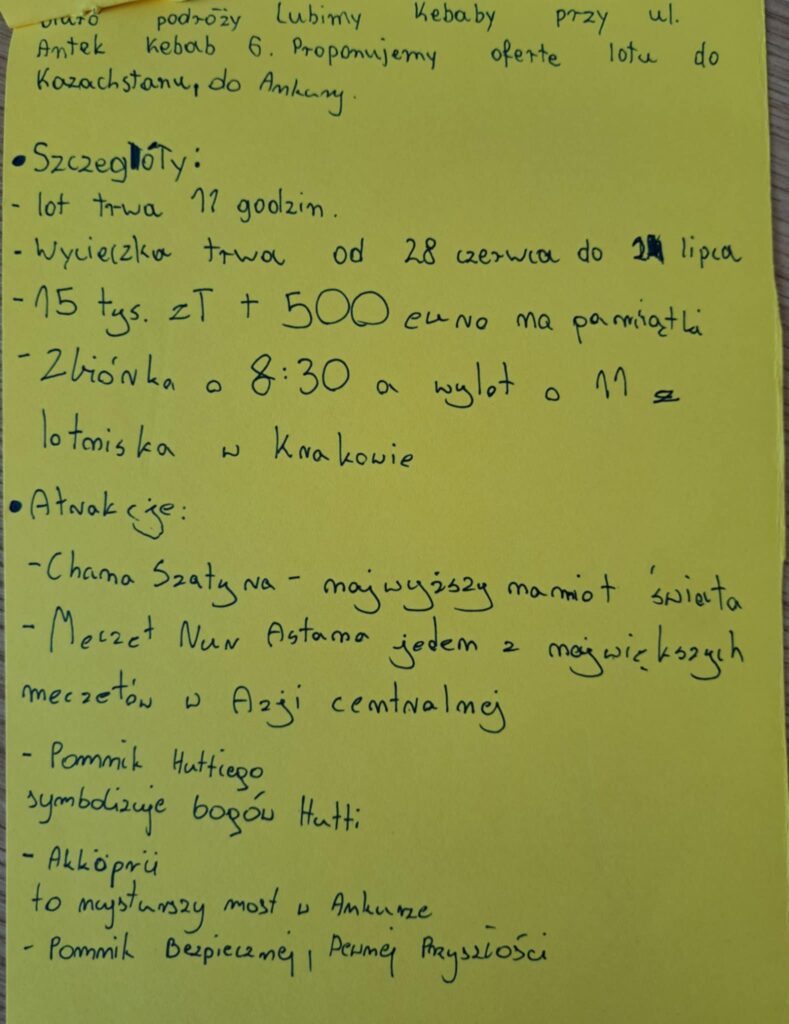 Biuro podróży Lubimy Kebaby przy ul.
Antek Kebab 6. Proponujemy oferte lotu do
Kazachstanu, do Ankury.
• Szczegłóty:
- lot trwa 11 godzin.
- Wycieczka trwa od 28 czerwca do lipca
- 15 tys. zł + 500 euro na pamiątki
- Zbiórka o 8:30 a wylot o 11 z
lotniska w Krakowie
• Atrakcje:
- Chana Szatyna - najwyższy namiot świata
- Meczet Nur Astana jeden z największych
meczetów w Azji centralnej
- Pomnik Huttiego
symbolizuje bogów Hutti
- Akköprü
to najsturszy most w Ankurze
- Pomnik Bezpiecznej, Pewnej Przyszłości